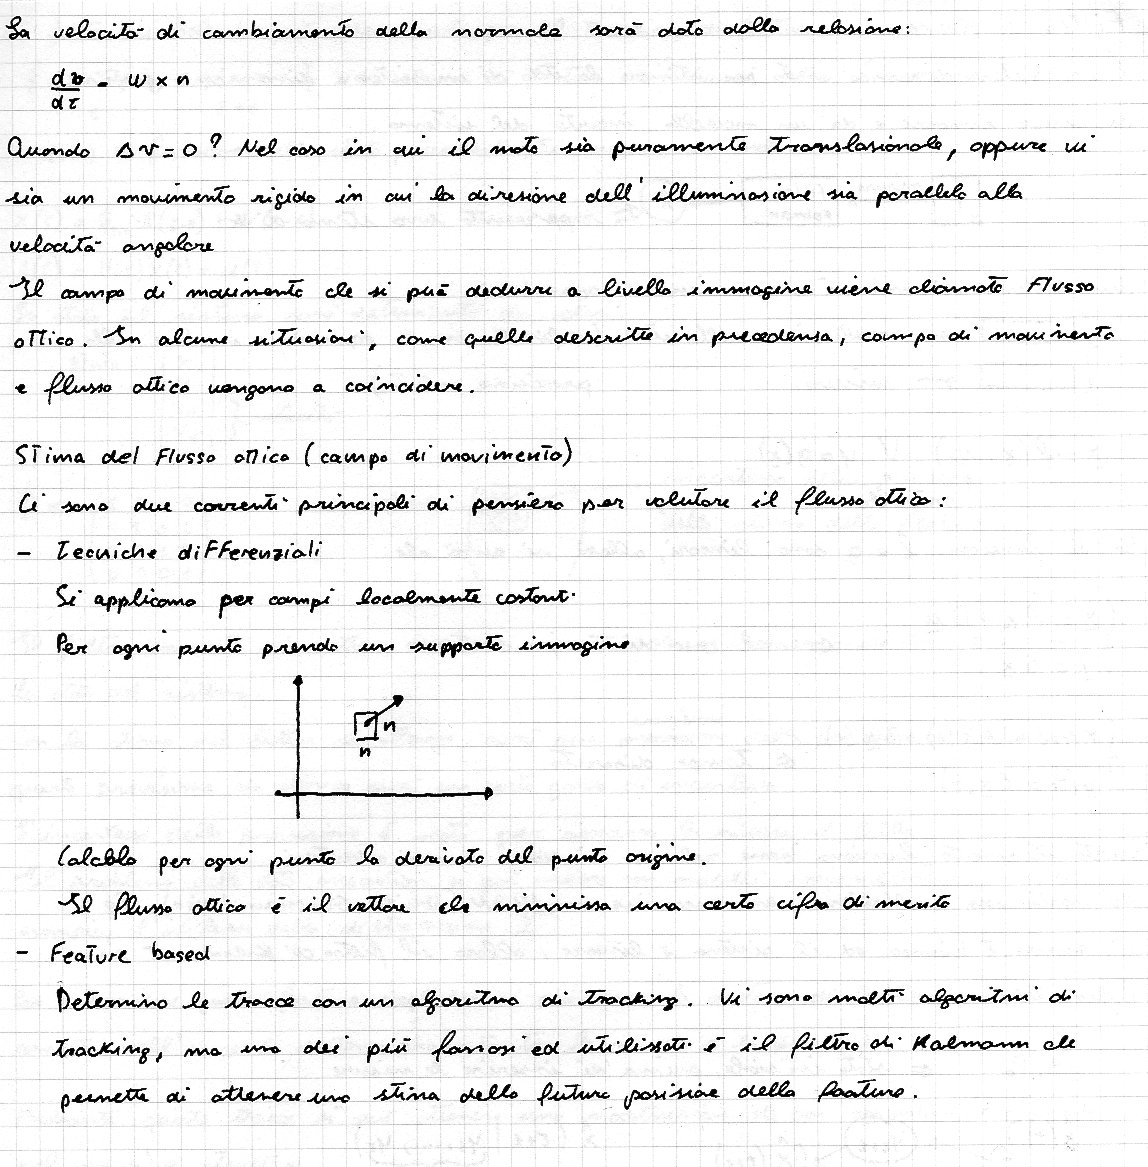 La velocità di cambiamento della normale sarà data dalla relazione:
dv/dt = w × n
Quando Δv = 0? Nel caso in cui il moto sia puramente translazionale, oppure vi
sia un movimento rigido in cui la direzione dell'illuminazione sia parallela alla
velocità angolare
Il campo di movimento che si può dedurre a livello immagine viene chiamato Flusso
ottico. In alcune situazioni, come quelle descritte in precedenza, campo di movimento
e flusso ottico vengono a coincidere.
Stima del Flusso ottico (campo di movimento)
Ci sono due correnti principali di pensiero per valutare il flusso ottico:
- Tecniche differenziali
Si applicano per campi localmente costanti
Per ogni punto prendo un supporto immagine
n
n
Calcolo per ogni punto la derivata del punto origine.
Il flusso ottico è il vettore che minimizza una certa cifra di merito
- Feature based
Determino le tracce con un algoritmo di tracking. Vi sono molti algoritmi di
tracking, ma uno dei più famosi ed utilizzati è il filtro di Kalmann che
permette di ottenere una stima della futura posizione della feature.